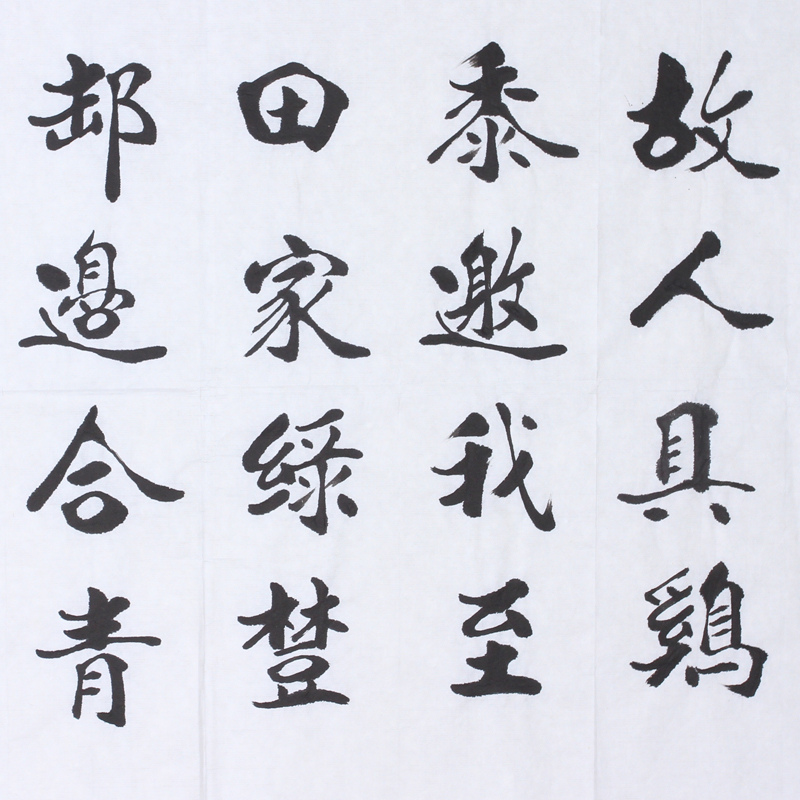 故人具鷄
黍邀我至
田家綠樹
邨邊合青